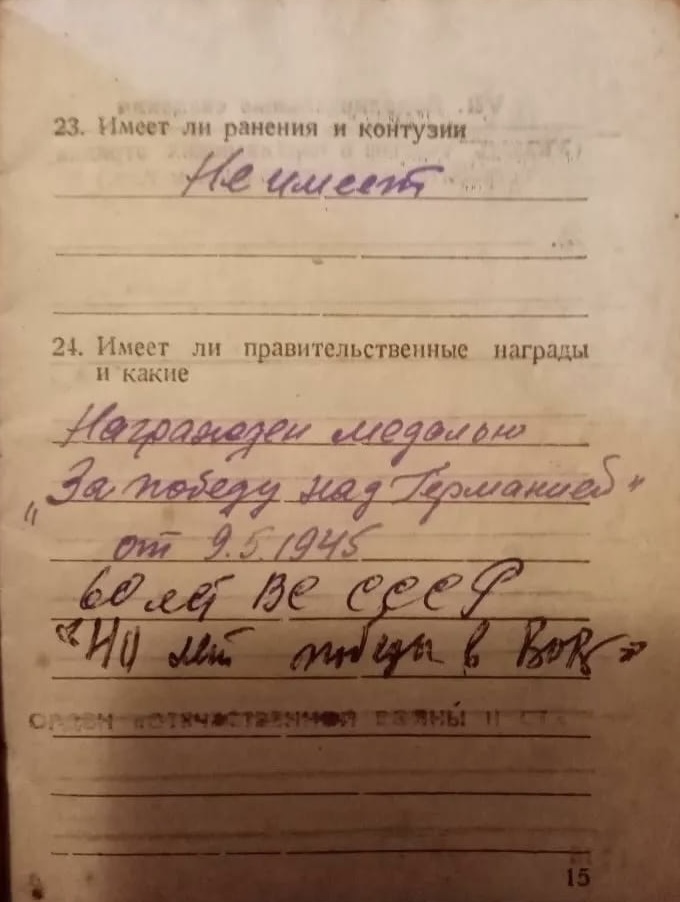 23. Имеет ли ранения и контузии
Не имеет
24. Имеет ли правительственные награды
и какие
Награжден медалью
„За победу над Германией"
от 9.5.1945
60 лет ВС СССР
«40 лет победы в ВОВ»
ОРДЕН ОТЕЧЕСТВЕННОЙ ВОЙНЫ II СТ.
15